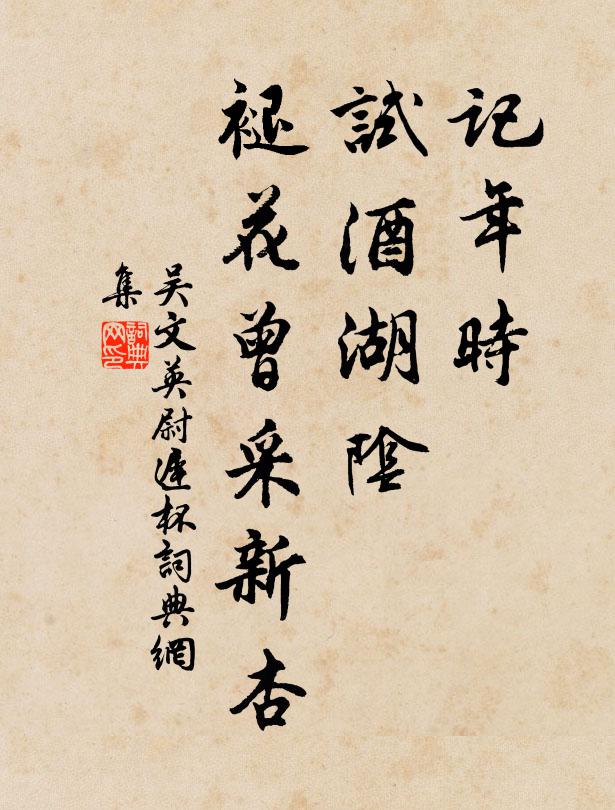 記年時
試酒湖陰
褪花曾采新杏
吴文英尉遲杯詞典網
集
詞典网印